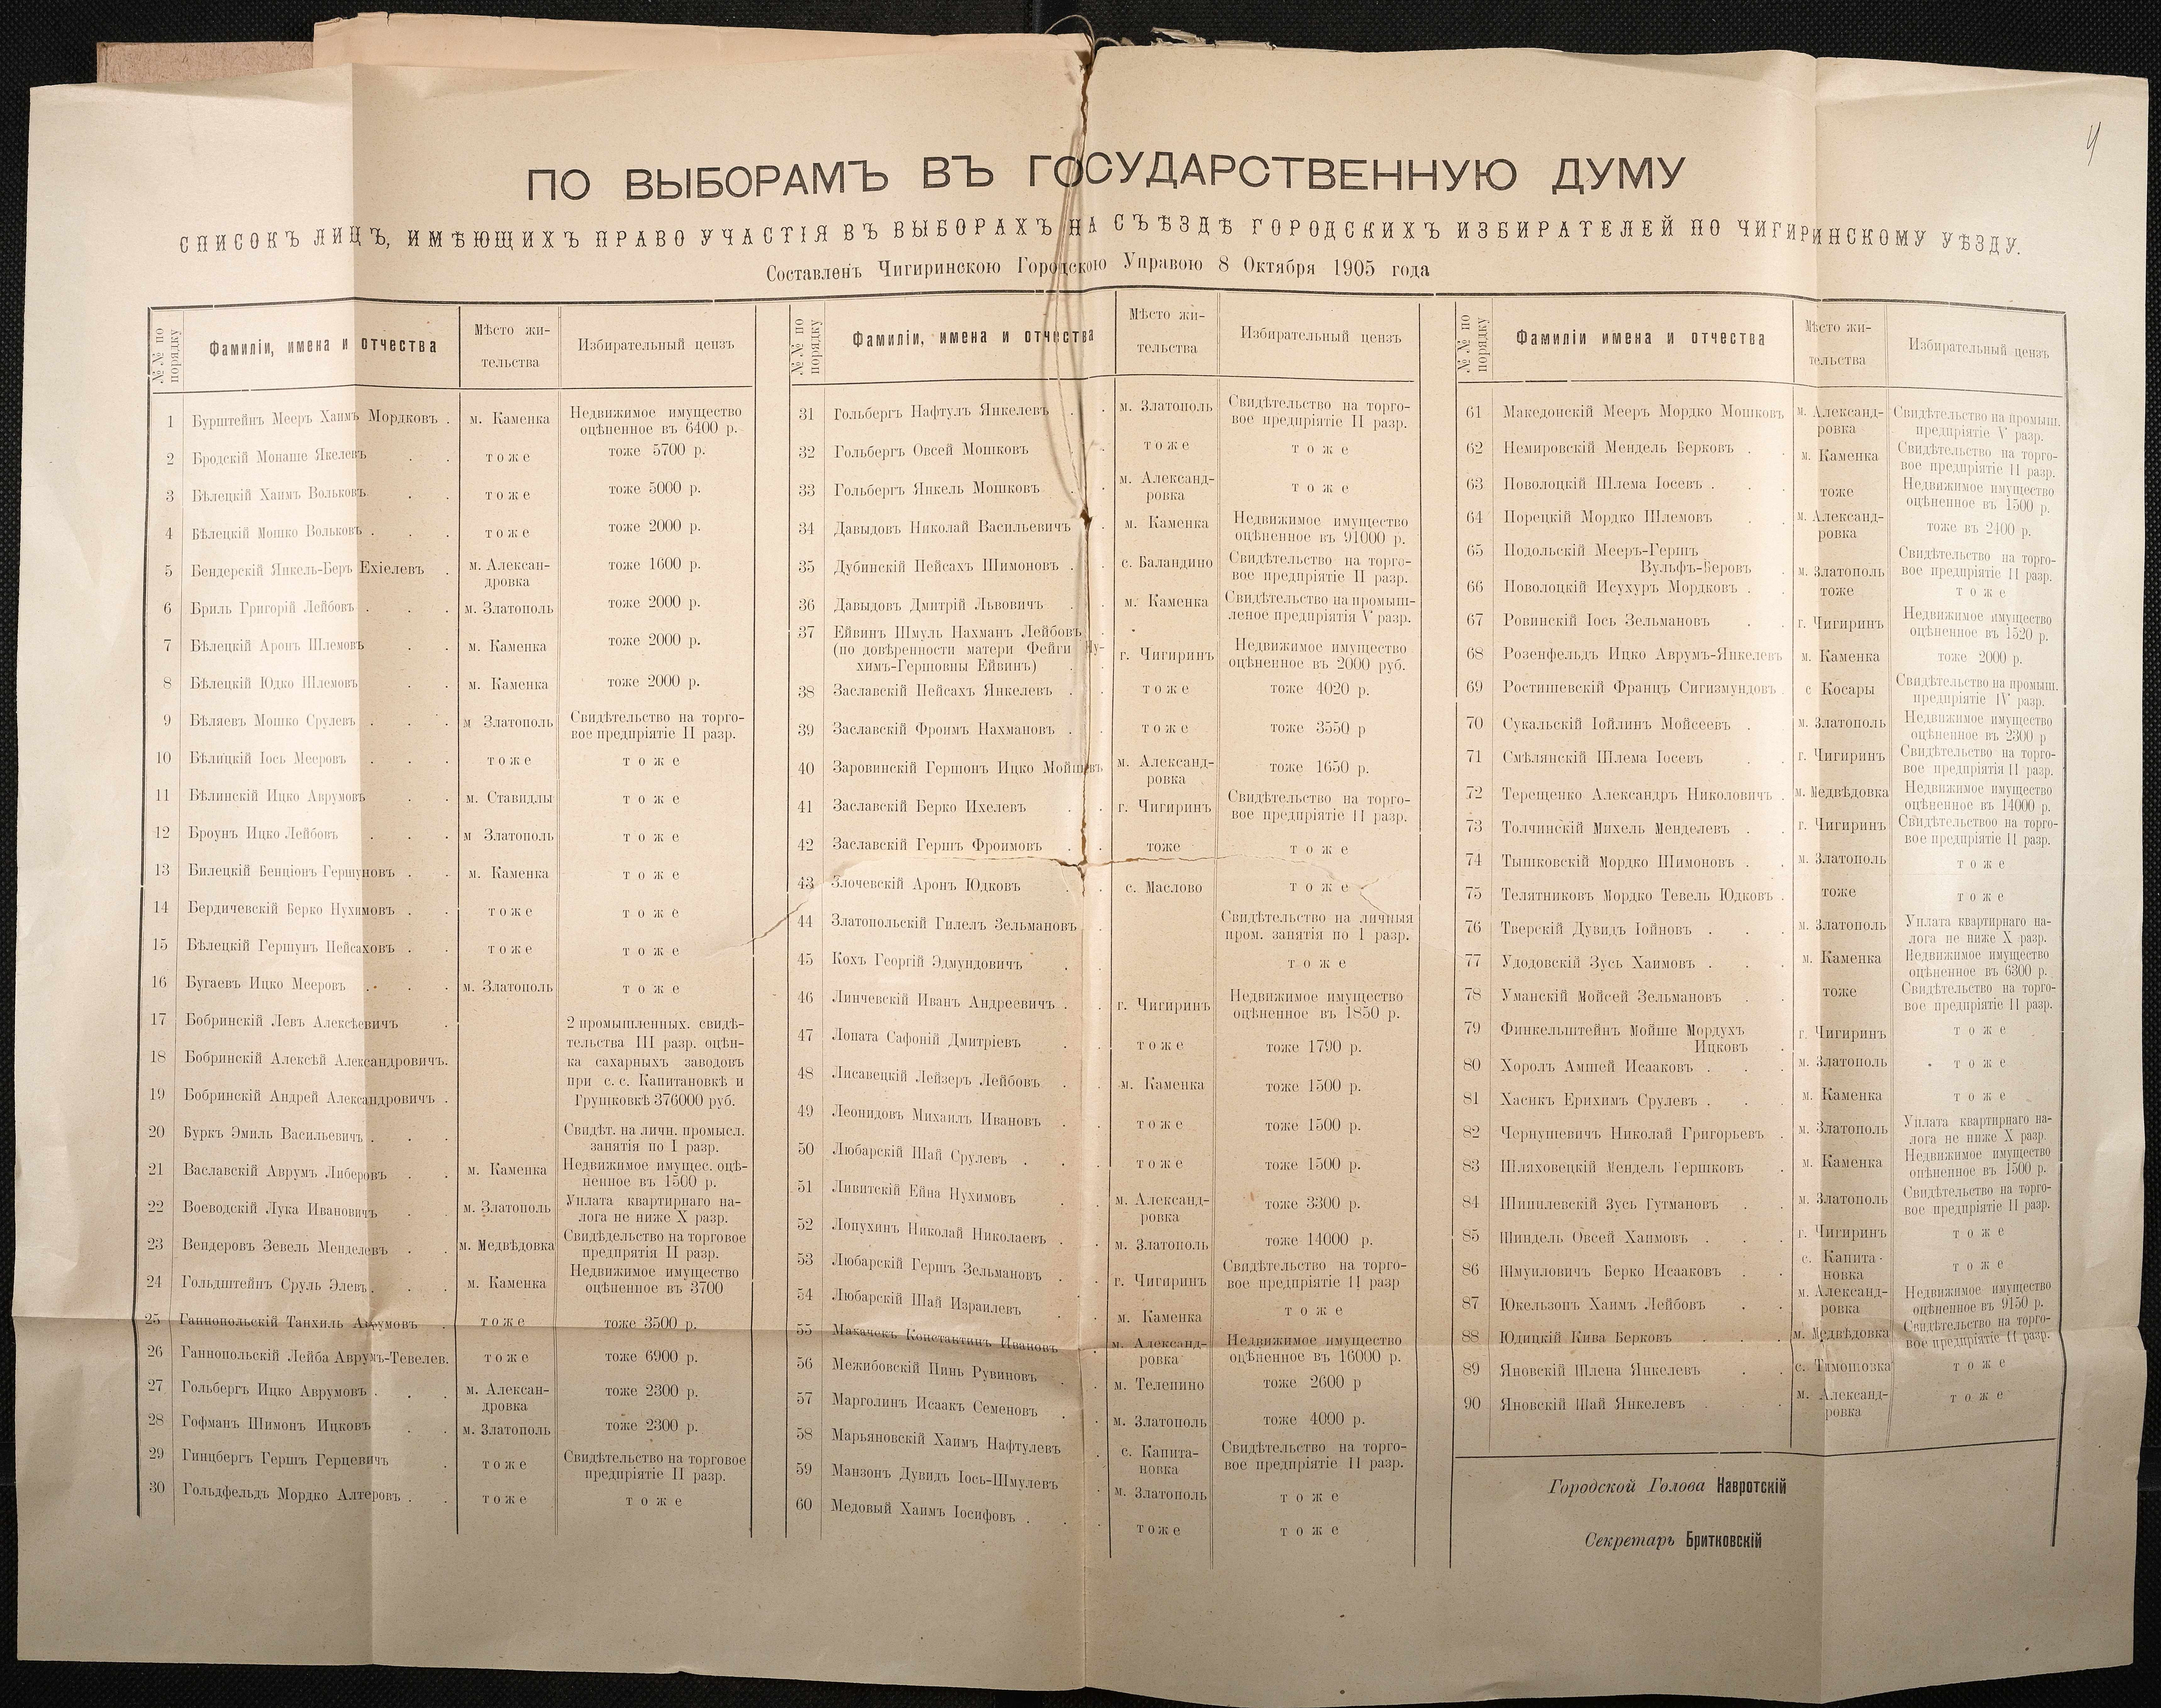 ч
ПО ВЫБОРАМЪ ВЪ ГОСУДАРСТВЕННУЮ ДУМУ
СПИСОКЪ ЛИЦЪ, ИМѢЮЩИХЪ ПРАВО УЧАСТІЯ ВЪ ВЫБОРАХЪ НА СЪѢЗДѢ ГОРОДСКИХЪ ИЗБИРАТЕЛЕЙ ПО ЧИГИРИНСКОМУ УѢЗДУ.
Составленъ Чигиринскою Городскою Управою 8 Октября 1905 года
№№ по порядку Фамиліи, имена и отчества Мѣсто жи- Избирательный цензъ
тельства
1 Бурштейнъ Мееръ Хаимъ Мордковъ . м. Каменка Недвижимое имущество
оцѣненное въ 6400 р.
2 Бродскій Монаше Якелевъ . . тоже тоже 5700 р.
3 Бѣлецкій Хаимъ Вольковъ . . тоже тоже 5000 р.
4 Бѣлецкій Мошко Вольковъ . . . тоже тоже 2000 р.
5 Бендерскій Янкель-Беръ Ехіелевъ . м. Алексан- тоже 1600 р.
дровка
6 Бриль Григорій Лейбовъ . . . м. Златополь тоже 2000 р.
7 Бѣлецкій Аронъ Шлемовъ . . м. Каменка тоже 2000 р.
8 Бѣлецкій Юдко Шлемовъ . . м. Каменка тоже 2000 р.
9 Бѣляевъ Мошко Срулевъ . . . м Златополь Свидѣтельство на торго-
вое предпріятіе II разр.
10 Бѣлицкій Іось Мееровъ . . . тоже тоже
11 Бѣлинскій Ицко Аврумовъ . . м. Ставидлы тоже
12 Броунъ Ицко Лейбовъ . . . м Златополь тоже
13 Билецкій Бенціонъ Гершуновъ . . м. Каменка тоже
14 Бердичевскій Берко Нухимовъ . . тоже тоже
15 Бѣлецкій Гершунъ Пейсаховъ . . тоже тоже
16 Бугаевъ Ицко Мееровъ . . . м. Златополь тоже
17 Бобринскій Левъ Алексѣевичъ . 2 промышленных. свидѣ-
тельства III разр. оцѣн-
18 Бобринскій Алексѣй Александровичъ. ка сахарныхъ заводовъ
при с. с. Капитановкѣ и
19 Бобринскій Андрей Александровичъ . Грушковкѣ 376000 руб.
20 Буркъ Эмиль Васильевичъ . . . Свидѣт. на личн. промысл.
занятія по I разр.
21 Ваславскій Аврумъ Либеровъ . . м. Каменка Недвижимое имущес. оцѣ-
ненное въ 1500 р.
22 Воеводскій Лука Ивановичъ . . м. Златополь Уплата квартирнаго на-
лога не ниже X разр.
23 Вендеровъ Зевель Менделевъ . . м. Медвѣдовка Свидѣдельство на торговое
предпрятія II разр.
24 Гольдштейнъ Сруль Элевъ . . . м. Каменка Недвижимое имущество
оцѣненное въ 3700
25 Ганнопольскій Танхиль Аврумовъ . тоже тоже 3500 р.
26 Ганнопольскій Лейба Аврумъ-Тевелев. тоже тоже 6900 р.
27 Гольбергъ Ицко Аврумовъ . . . м. Алексан- тоже 2300 р.
дровка
28 Гофманъ Шимонъ Ицковъ . . м. Златополь тоже 2300 р.
29 Гинцбергъ Гершъ Герцевичъ . тоже Свидѣтельство на торговое
предпріятіе II разр.
30 Гольдфельдъ Мордко Алтеровъ . . тоже тоже
№№ по порядку Фамиліи, имена и отчества Мѣсто жи- Избирательный цензъ
тельства
31 Гольбергъ Нафтулъ Янкелевъ . . м. Златополь Свидѣтельство на торго-
вое предпріятіе II разр.
32 Гольбергъ Овсей Мошковъ . тоже тоже
33 Гольбергъ Янкель Мошковъ . м. Александ- тоже
ровка
34 Давыдовъ Николай Васильевичъ . м. Каменка Недвижимое имущество
оцѣненное въ 91000 р.
35 Дубинскій Пейсахъ Шимоновъ . . с. Баландино Свидѣтельство на торго-
вое предпріятіе II разр.
36 Давыдовъ Дмитрій Львовичъ . . м. Каменка Свидѣтельство на промыш-
леное предпріятія V разр.
37 Ейвинъ Шмуль Нахманъ Лейбовъ .
(по довѣренности матери Фейги Ну- г. Чигиринъ Недвижимое имущество
химъ-Гершовны Ейвинъ) . оцѣненное въ 2000 руб.
38 Заславскій Пейсахъ Янкелевъ . . тоже тоже 4020 р.
39 Заславскій Фроимъ Нахмановъ . . тоже тоже 3550 р
40 Заровинскій Гершонъ Ицко Мойшевъ м. Александ- тоже 1650 р.
ровка
41 Заславскій Берко Ихелевъ . . г. Чигиринъ Свидѣтельство на торго-
вое предпріятіе II разр.
42 Заславскій Гершъ Фроимовъ . . тоже тоже
43 Злочевскій Аронъ Юдковъ . . с. Маслово тоже
44 Златопольскій Гилелъ Зельмановъ . Свидѣтельство на личныя
пром. занятія по 1 разр.
45 Кохъ Георгій Эдмундовичъ . . тоже
46 Линчевскій Иванъ Андреевичъ . . г. Чигиринъ Недвижимое имущество
оцѣненное въ 1850 р.
47 Лопата Сафоній Дмитріевъ . . тоже тоже 1790 р.
48 Лисавецкій Лейзеръ Лейбовъ . . м. Каменка тоже 1500 р.
49 Леонидовъ Михаилъ Ивановъ . . тоже тоже 1500 р.
50 Любарскій Шай Срулевъ . . . тоже тоже 1500 р.
51 Ливитскій Ейна Нухимовъ . . м. Александ- тоже 3300 р.
ровка
52 Лопухинъ Николай Николаевъ . . м. Златополь тоже 14000 р.
53 Любарскій Гершъ Зельмановъ . . г. Чигиринъ Свидѣтельство на торго-
вое предпріятіе II разр
54 Любарскій Шай Израилевъ . . м. Каменка тоже
55 Макачекъ Константинъ Ивановъ . м. Александ- Недвижимое имущество
ровка оцѣненное въ 16000 р.
56 Межибовскій Пинь Рувиновъ . . м. Телепино тоже 2600 р
57 Марголинъ Исаакъ Семеновъ . . м. Златополь тоже 4000 р.
58 Марьяновскій Хаимъ Нафтулевъ . с. Капита- Свидѣтельство на торго-
новка вое предпріятіе II разр.
59 Манзонъ Дувидъ Іось-Шмулевъ . м. Златополь тоже
60 Медовый Хаимъ Іосифовъ . . . тоже тоже
№№ по порядку Фамиліи имена и отчества Мѣсто жи- Избирательный цензъ
тельства
61 Македонскій Мееръ Мордко Мошковъ м. Александ- Свидѣтельство на промыш.
ровка предпріятіе V разр.
62 Немировскій Мендель Берковъ . . м. Каменка Свидѣтельство на торго-
вое предпріятіе II разр.
63 Поволоцкій Шлема Іосевъ . . . тоже Недвижимое имущество
оцѣненное въ 1500 р.
64 Порецкій Мордко Шлемовъ . . м. Александ- тоже въ 2400 р.
ровка
65 Подольскій Мееръ-Гершъ Свидѣтельство на торго-
Вульфъ-Беровъ . м. Златополь вое предпріятіе II разр.
66 Поволоцкій Исухуръ Мордковъ . . тоже тоже
67 Ровинскій Іось Зельмановъ . . г. Чигиринъ Недвижимое имущество
оцѣненное въ 1520 р.
68 Розенфельдъ Ицко Аврумъ-Янкелевъ м. Каменка тоже 2000 р.
69 Ростишевскій Францъ Сигизмундовъ . с Косары Свидѣтельство на промыш.
предпріятіе IV разр.
70 Сукальскій Іойлинъ Мойсеевъ . . м. Златополь Недвижимое имущество
оцѣненное въ 2300 р
71 Смѣлянскій Шлема Іосевъ . . г. Чигиринъ Свидѣтельство на торго-
вое предпріятія II разр.
72 Терещенко Александръ Николовичъ . м. Медвѣдовка Недвижимое имущество
оцѣненное въ 14000 р.
73 Толчинскій Михель Менделевъ . . г. Чигиринъ Свидѣтельствоо на торго-
вое предпріятіе II разр.
74 Тышковскій Мордко Шимоновъ . . м. Златополь тоже
75 Телятниковъ Мордко Тевель Юдковъ . тоже тоже
76 Тверскій Дувидъ Іойновъ . . . м. Златополь Уплата квартирнаго на-
лога не ниже X разр.
77 Удодовскій Зусь Хаимовъ . . . м. Каменка Недвижимое имущество
оцѣненное въ 6300 р.
78 Уманскій Мойсей Зельмановъ . . тоже Свидѣтельство на торго-
вое предпріятіе II разр.
79 Финкельштейнъ Мойше Мордухъ г. Чигиринъ тоже
Ицковъ .
80 Хоролъ Амшей Исааковъ . . . м. Златополь тоже
81 Хасикъ Ерихимъ Срулевъ . . . м. Каменка тоже
82 Чернушевичъ Николай Григорьевъ . м. Златополь Уплата квартирнаго на-
лога не ниже X разр.
83 Шляховецкій Мендель Гершковъ . м. Каменка Недвижимое имущество
оцѣненное въ 1500 р.
84 Шипилевскій Зусь Гутмановъ . . м. Златополь Свидѣтельство на торго-
вое предпріятіе II разр.
85 Шиндель Овсей Хаимовъ . . . г. Чигиринъ тоже
86 Шмуиловичъ Берко Исааковъ . . с. Капита- тоже
новка
87 Юкельзонъ Хаимъ Лейбовъ . . м. Александ- Недвижимое имущество
ровка оцѣненное въ 9150 р.
88 Юдицкій Кива Берковъ . . . м. Медвѣдовка Свидѣтельство на торго-
вое предпріятіе II разр.
89 Яновскій Шлена Янкелевъ . . с. Тимошовка тоже
90 Яновскій Шай Янкелевъ . . . м. Александ- тоже
ровка
Городской Голова Навротскій
Секретарь Бритковскій